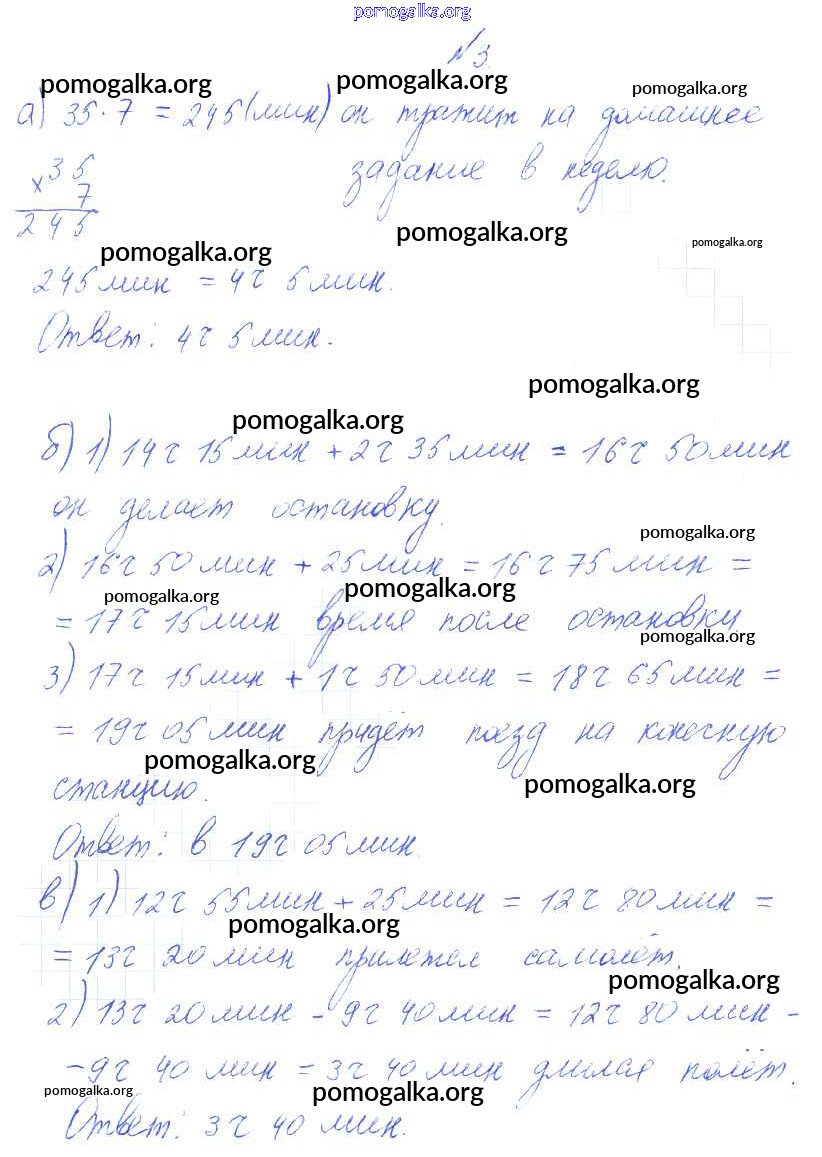 pomogalka.org
№3.
pomogalka.org pomogalka.org pomogalka.org
а) 35·7 = 245(мин) он тратит на домашнее
× 35 задание в неделю.
7
245
pomogalka.org pomogalka.org
pomogalka.org
245мин = 4ч 5мин.
Ответ: 4ч 5мин.
pomogalka.org
pomogalka.org
б) 1) 14ч 15мин + 2ч 35мин = 16ч 50мин
он делает остановку.
pomogalka.org
2) 16ч 50мин + 25мин = 16ч 75мин =
pomogalka.org pomogalka.org
= 17ч 15мин время после остановки
pomogalka.org
3) 17ч 15мин + 1ч 50мин = 18ч 65мин =
= 19ч 05мин придёт поезд на конечную
pomogalka.org pomogalka.org
станцию.
Ответ: в 19ч 05мин.
в) 1) 12ч 55мин + 25мин = 12ч 80мин =
pomogalka.org
= 13ч 20мин прилетел самолёт.
pomogalka.org
2) 13ч 20мин - 9ч 40мин = 12ч 80мин -
- 9ч 40мин = 3ч 40мин длился полёт.
pomogalka.org pomogalka.org
Ответ: 3ч 40мин.